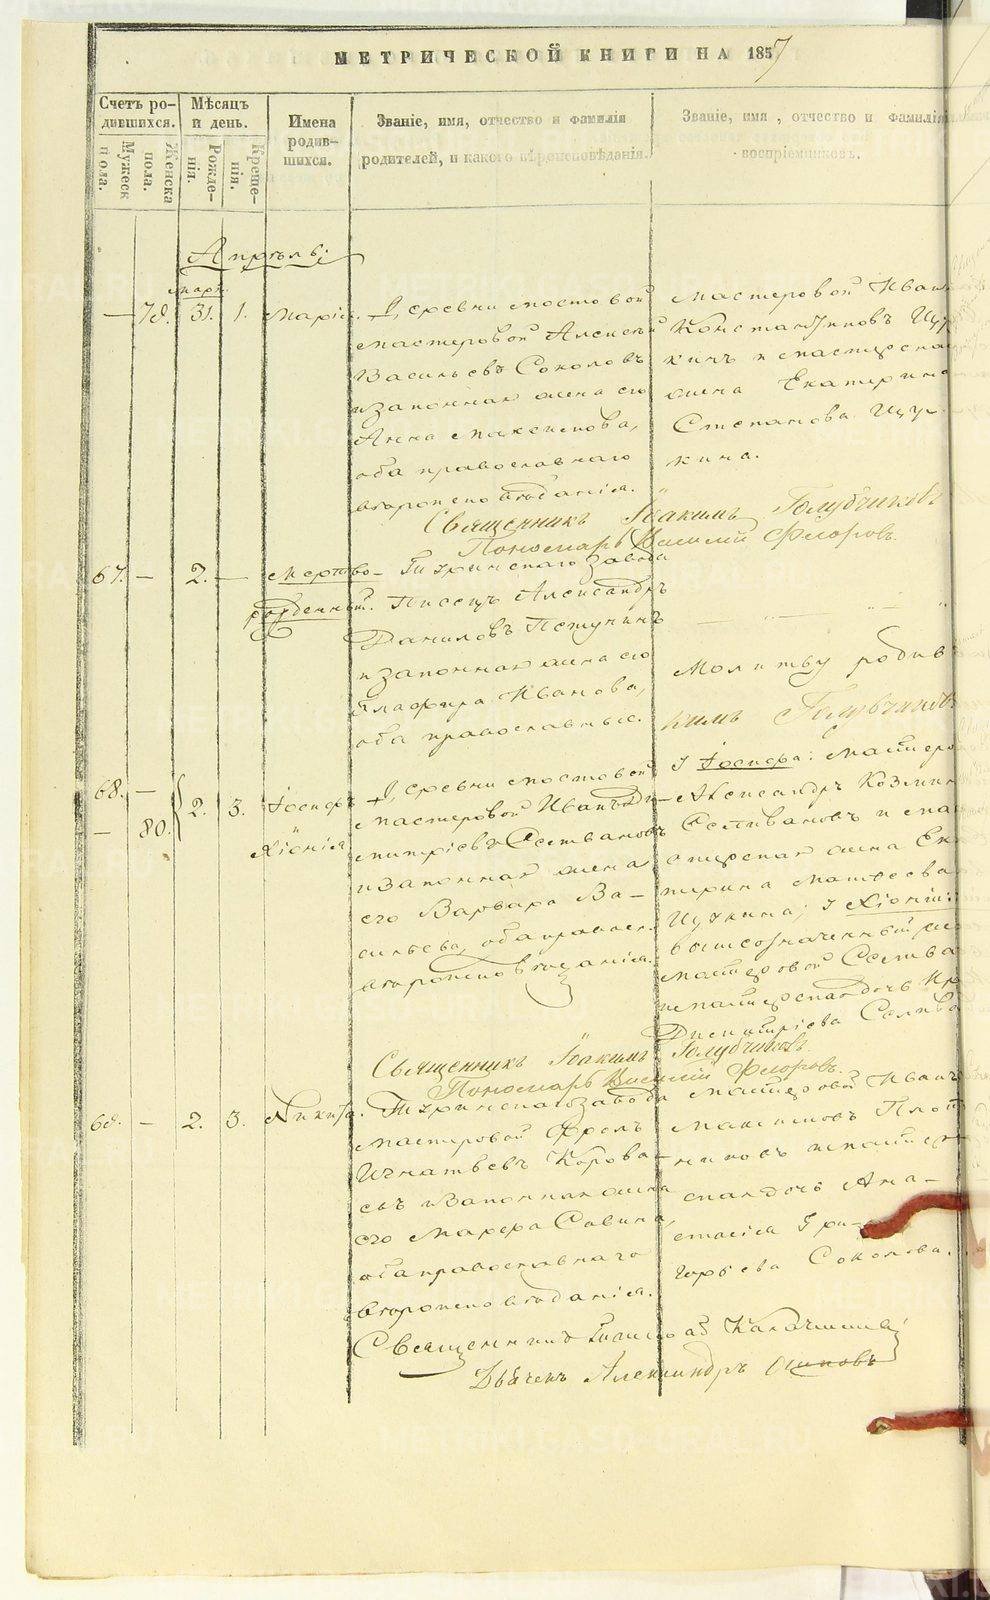 МЕТРИЧЕСКОЙ КНИГИ НА 1857
Счетъ ро-
дившихся.
Мужеск
пола.
Женска
пола.
Мѣсяцъ
и день.
Рожде-
нія.
Креще-
нія.
Имена
родив-
шихся.
Званіе, имя, отчество и фамилія
родителей, и какого вѣроисповѣданія.
Званіе, имя, отчество и фамилія
воспріемниковъ.
Апрѣль:
март.
— 31. 1. Марія.
деревни Мостовой
мастеровой Алексѣй
Васильевъ Соколовъ
и законная жена его
Анна Максимова,
оба православнаго
вѣроисповѣданія.
Мастеровой Иван
Константиновъ Щу
кинъ и мастерска
жена Екатерина
Степанова Щу-
кина.
Священникъ Іоакимъ Голубчиковъ
Пономарь Василій Флоровъ.
67. — 2. — Мертво-
рожденный.
завода
Писецъ Александръ
Даниловъ Петунинъ
и законная жена его
Глафира Иванова,
оба православные.
Молитву родив
кимъ Голубчиковъ
68. —
— 80.
2. 3. Іосифъ
Хіонія
деревни Мостовой
мастеровой Иванъ Ди-
митріевъ Селивановъ
и законная жена
его Варвара Ва-
сильева, оба правосл.
вѣроисповѣданія.
Іосифа: Мастеро
Александръ Козмин
Селивановъ и ма
стерская жена Ека
терина Матвеева
Щукина; Хіоніи:
вышеозначенный
мастеровой Селива
и мастерская дочь
Димитріева Селива
Священникъ Іоакимъ Голубчиковъ.
Пономарь Василій Флоровъ.
69. — 2. 3. Никита.
завода
Мастеровой Фролъ
Игнатьевъ Корова-
евъ и законная жена
его Марфа Савина,
оба православнаго
вѣроисповѣданія.
мастеровой Иванъ
Максимовъ Плот
никовъ и мастер
ская дочь Ана-
стасія Гри-
горьева Соколова.
Священникъ
Дьячекъ Александръ Осиповъ
METRIKI.GASO-URAL.RU